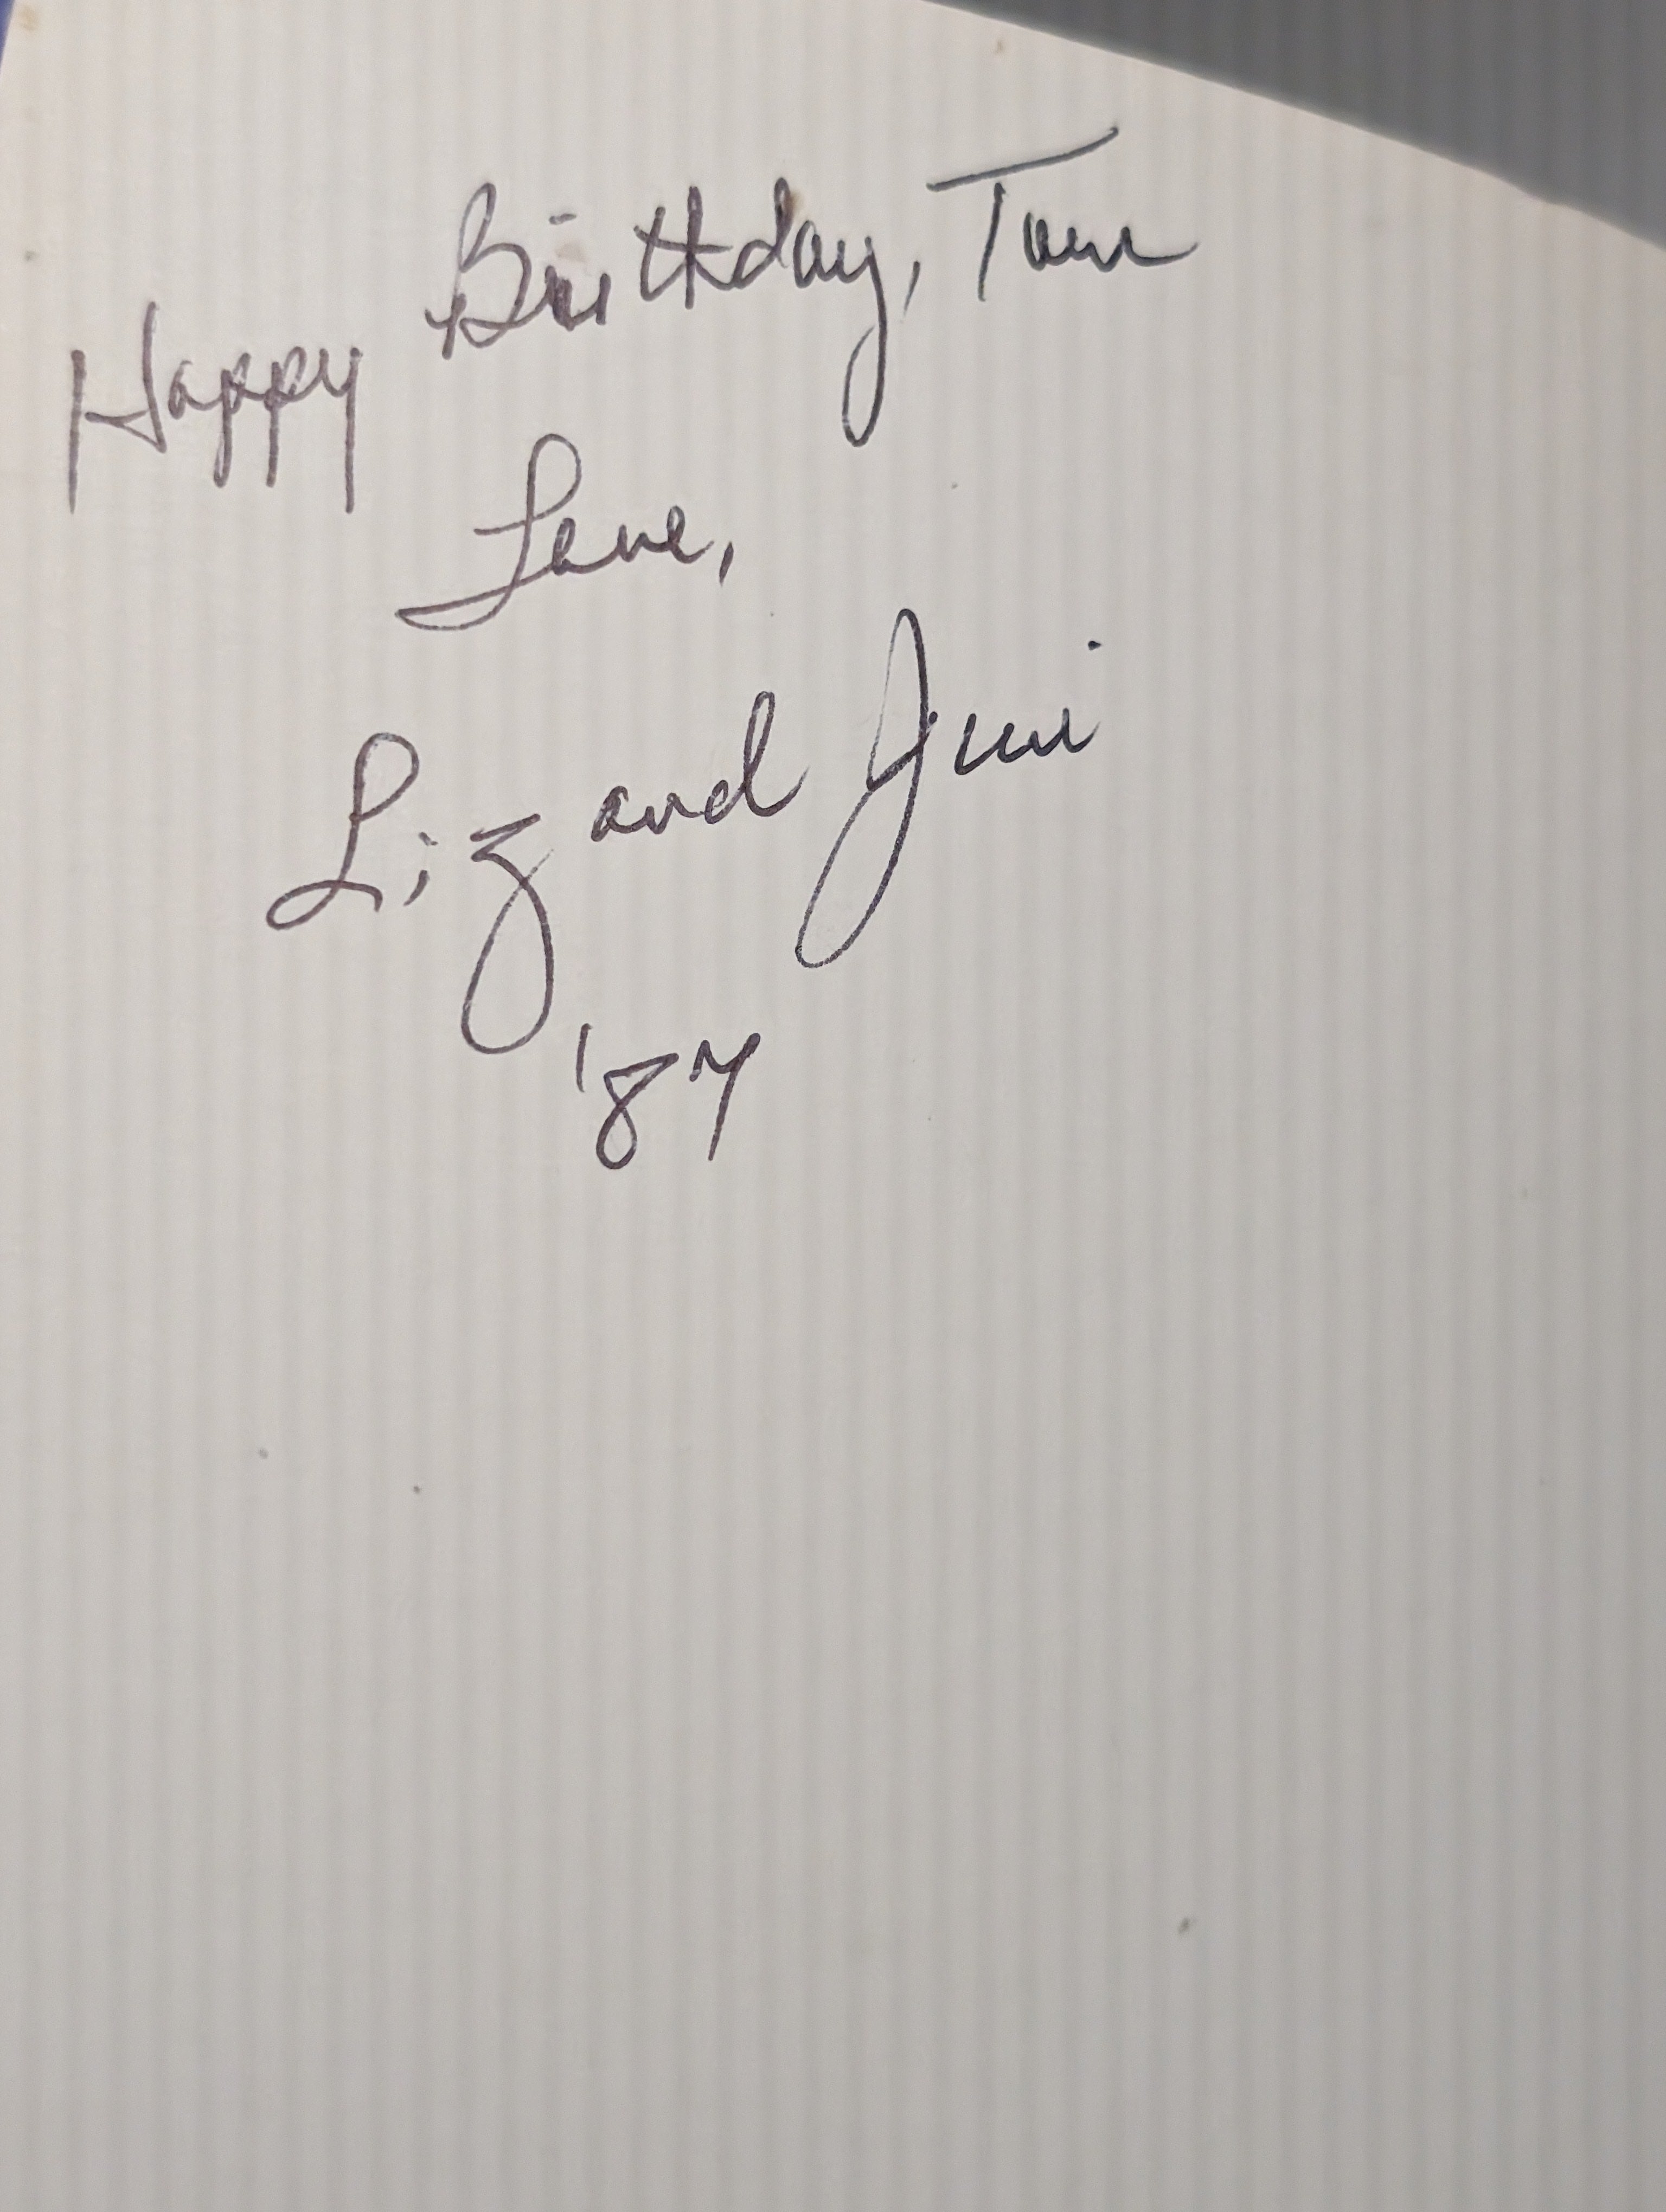 Happy Birthday, Tom
Love,
Liz and Jim
'87